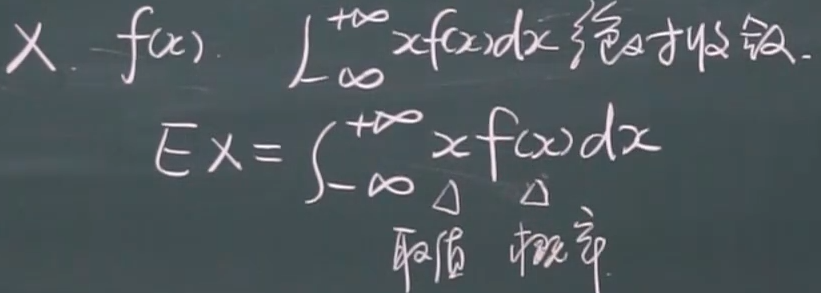 X. f(x). ∫_{-∞}^{+∞} xf(x)dx 绝对收敛.
EX = ∫_{-∞}^{+∞} x f(x) dx
△ △
取值 概率